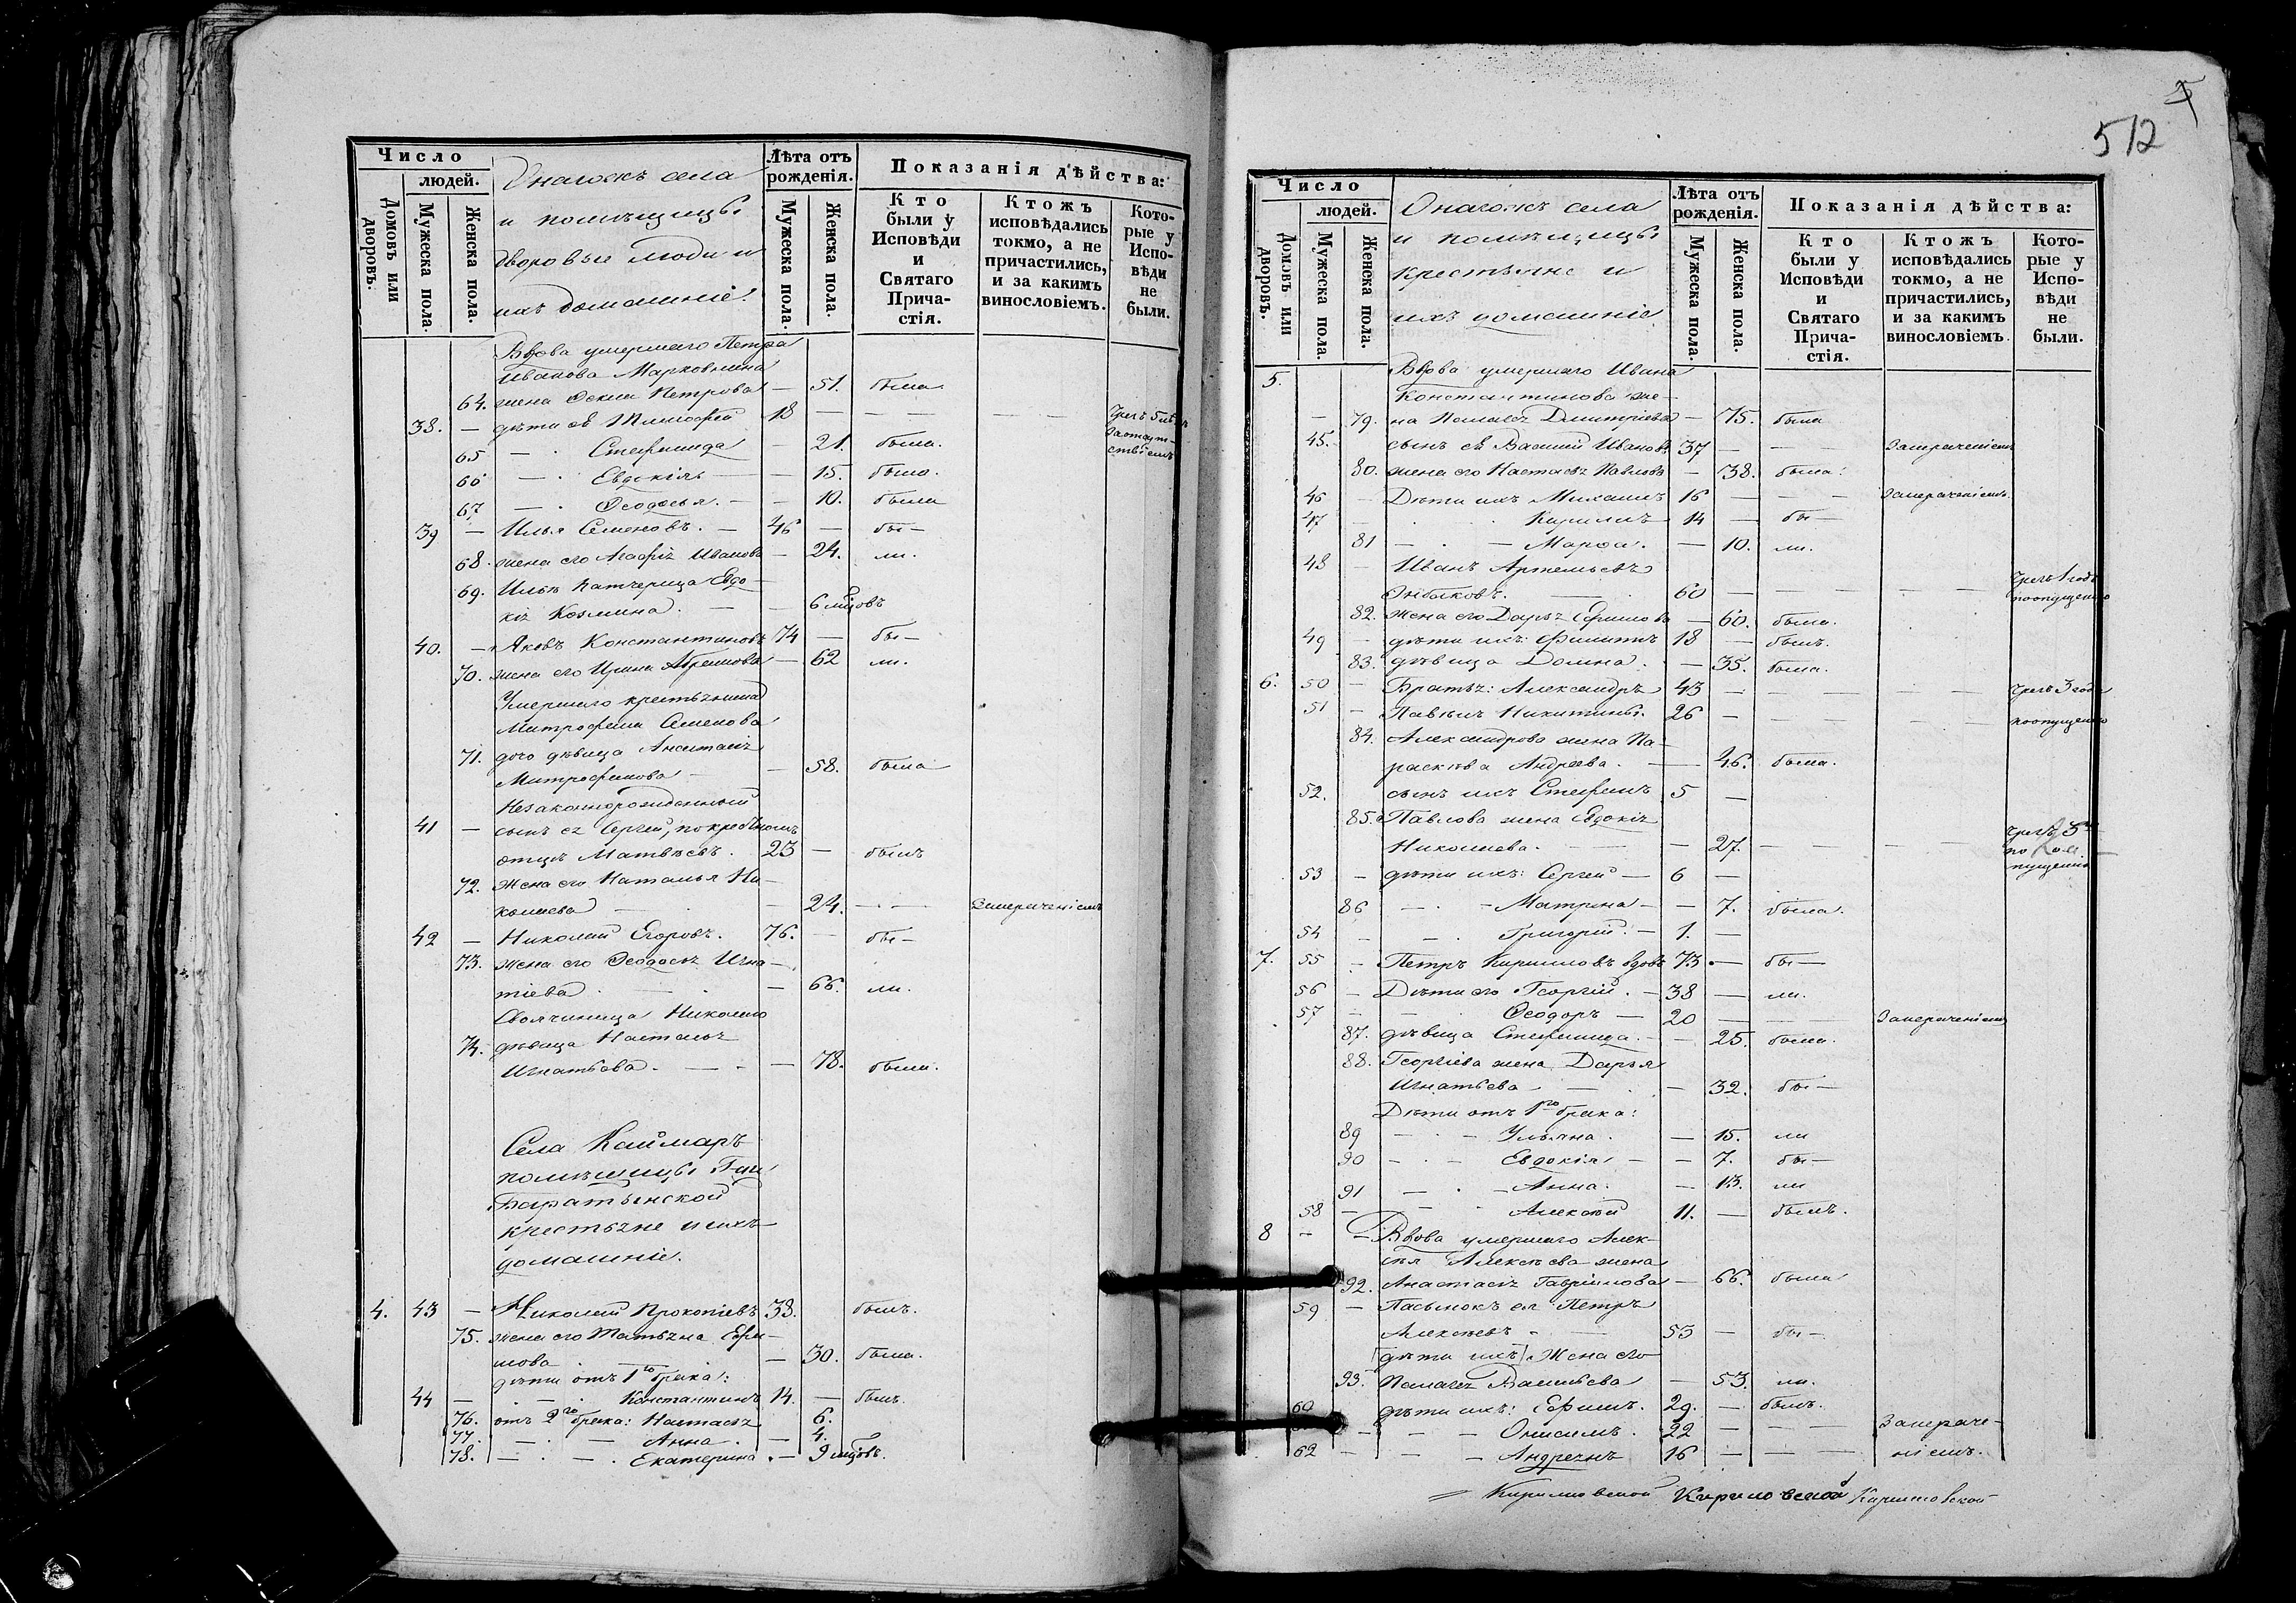 Число
людей.
Домовъ или дворовъ.
Мужеска пола.
Женска пола.
Онагожъ села
и помѣщицы
дворовые люди и
ихъ домашніе.
Лѣта отъ рожденія.
Мужеска пола.
Женска пола.
Показанія дѣйства:
Кто были у Исповѣди и Святаго Причастія.
Ктожъ исповѣдались токмо, а не причастились, и за какимъ винословіемъ.
Которые у Исповѣди не были.
Вдова умершаго Петра
Иванова Марковнина
64. жена Петрова — 51. была
38. — дѣти ея Тимофей 18 — — — —
65 — Стефанида — 21. была.
66 — Евдокія — 15. была.
67 — Ѳеодосья. — 10. была
39 — Илья Семеновъ. — 46 — бы—
68. жена его Агафія Иванова — 24. ли.
69. Ильи падчерица Евдо-
кія Козмина. — 6 мцовъ
40. — Яковъ Константиновъ 74 — бы—
70. жена его Ирина Абрамова — 62 ли.
Умершаго крестьянина
Митрофана Семенова
71. дочь дѣвица Анастасія
Митрофанова — — 58. была
Незаконнорожденный
41 — сынъ ея Сергей, по крестномъ
отцѣ Матвѣевъ. 23 — былъ
72. Жена его Наталья Ни-
колаева — — 24. — — Заперечніемъ
42 — Николай Егоровъ. 76. — бы—
73. жена его Ѳеодосія Игна-
тіева — 66. ли.
Своячиница Николаю
74. дѣвица Настасія
Игнатьева. — — 78. была.
Села Каймаръ
помѣщицы Гжи
Баратынской
крестьяне и ихъ
домашніе.
4. 43 — Николай Прокопіевъ 38. былъ.
75. жена его Татьяна Ефи-
мова — 30. была.
дѣти отъ 1го брака:
44 — Константинъ 14. — былъ.
76. отъ 2го брака: Настасія 6.
77. — Анна. — 4.
78. — Екатерина. — 9 мцовъ.
512
Число
людей.
Домовъ или дворовъ.
Мужеска пола.
Женска пола.
Онагожъ села
и помѣщицы
крестьяне и
ихъ домашніе.
Лѣта отъ рожденія.
Мужеска пола.
Женска пола.
Показанія дѣйства:
Кто были у Исповѣди и Святаго Причастія.
Ктожъ исповѣдались токмо, а не причастились, и за какимъ винословіемъ.
Которые у Исповѣди не были.
5. Вдова умершаго Ивана
Константинова же-
— 79. на Пелагея Дмитріева — 75. была
45. сынъ ея Василий Ивановъ 37 — —
80. жена его Настасья Павлова — 38. была.
46 — Дѣти ихъ Михаилъ 16 — — —
47 — Кирилъ 14 — бы—
81 — Марѳа. — 10. ли.
48 — Иванъ Артемьевъ
60 — — — — чрезъ 1 годъ
82. Жена его Дарья Ефимова — 60. была.
49 — дѣти ихъ: Филиппъ 18 — былъ.
83. дѣвица Домна. — 35. была.
6. 50 — Братья: Александръ 43 — — — — чрезъ 3 года
51 — Павелъ Никитины. 26 — — — — поопущенію
84. Александрова жена Па-
раскева Андреева. — — 46. была.
52. сынъ ихъ Стефанъ 5 —
85. Павлова жена Евдокія
Николаева. — — 27. — — —
53 — дѣти ихъ: Сергей — 6 —
86 — Матрена — — 7. была.
54 — Григорій. — 1. —
7. 55 — Петръ Кириловъ вдовъ 73 — бы—
56 — Дѣти его Георгій. — 38 — ли.
57 — Ѳеодоръ — 20 — —
87. дѣвица Стефанида. — 25. была.
88. Георгіева жена Дарья
Игнатьева — — 32. бы—
Дѣти отъ 1го брака:
89 — Ульяна. — 15. ли
90 — Евдокія — — 7. бы—
91 — Анна. — 13. ли
58 — Алексѣй 11. — былъ.
8 — — Вдова умершаго Алек-
сѣя Алексѣева жена
92. Анастасія Гавріилова — 66. была
59 — Пасынокъ ея Петръ
Алексѣевъ — 53 — бы—
[дѣти ихъ] Жена его
93. Пелагея Васильева — 53. ли.
60 дѣти ихъ: Ефимъ. 29. — былъ.
— Онисимъ. 22 — —
62 — Андреянъ 16 — —
Кириловской Кириловской Кириловской